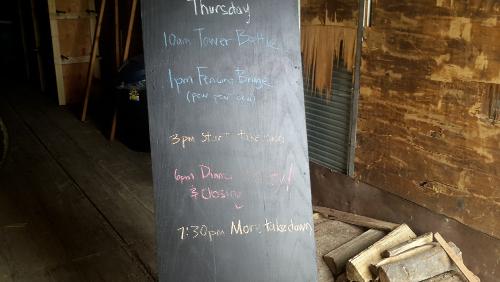 Thursday
10am Tower Battle
1pm Fencing Bridge
(pew pew pew)
3pm start takedown
6pm Dinner
& Closing
7:30pm More takedown